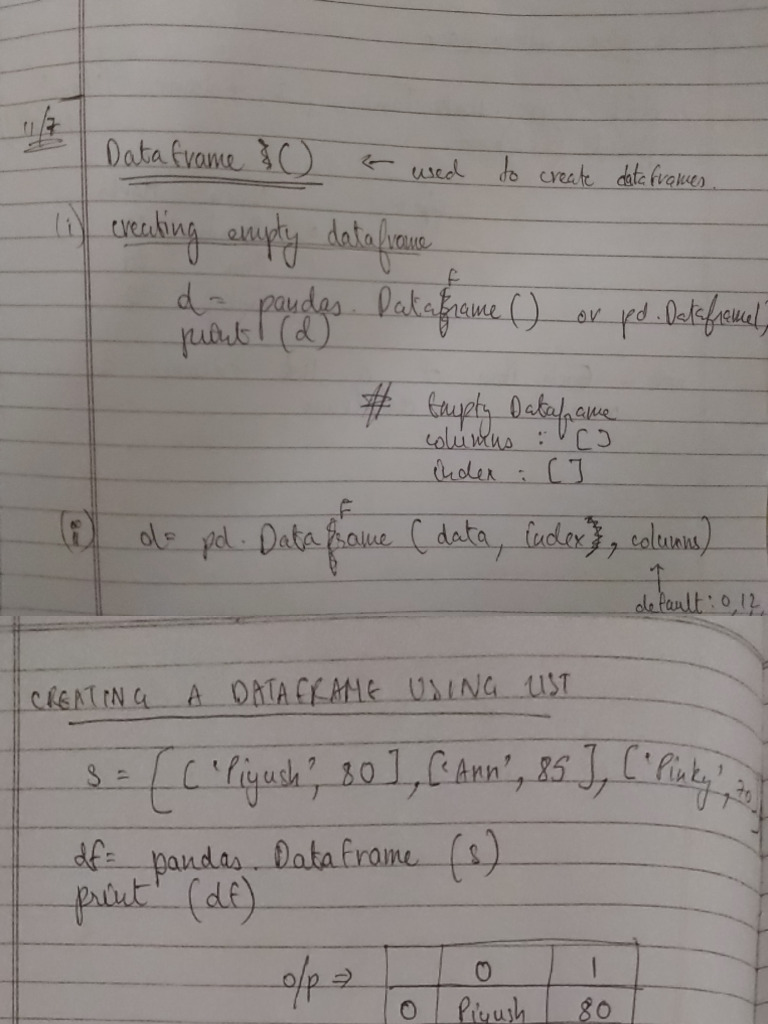 11/7
DataFrame () ← used to create dataframes.
(i) creating empty dataframe
d = pandas. DataFrame () or pd. Dataframe(
print (d)
# Empty Dataframe
columns : []
index : []
(ii) d = pd. DataFrame (data, index, columns)
↑
default : 0,1,2,
CREATING A DATAFRAME USING LIST
s = [['Piyush', 80], ['Ann', 85], ['Pinky', 70
df = pandas. DataFrame (s)
print (df)
o/p ⇒ 0 1
0 Piyush 80